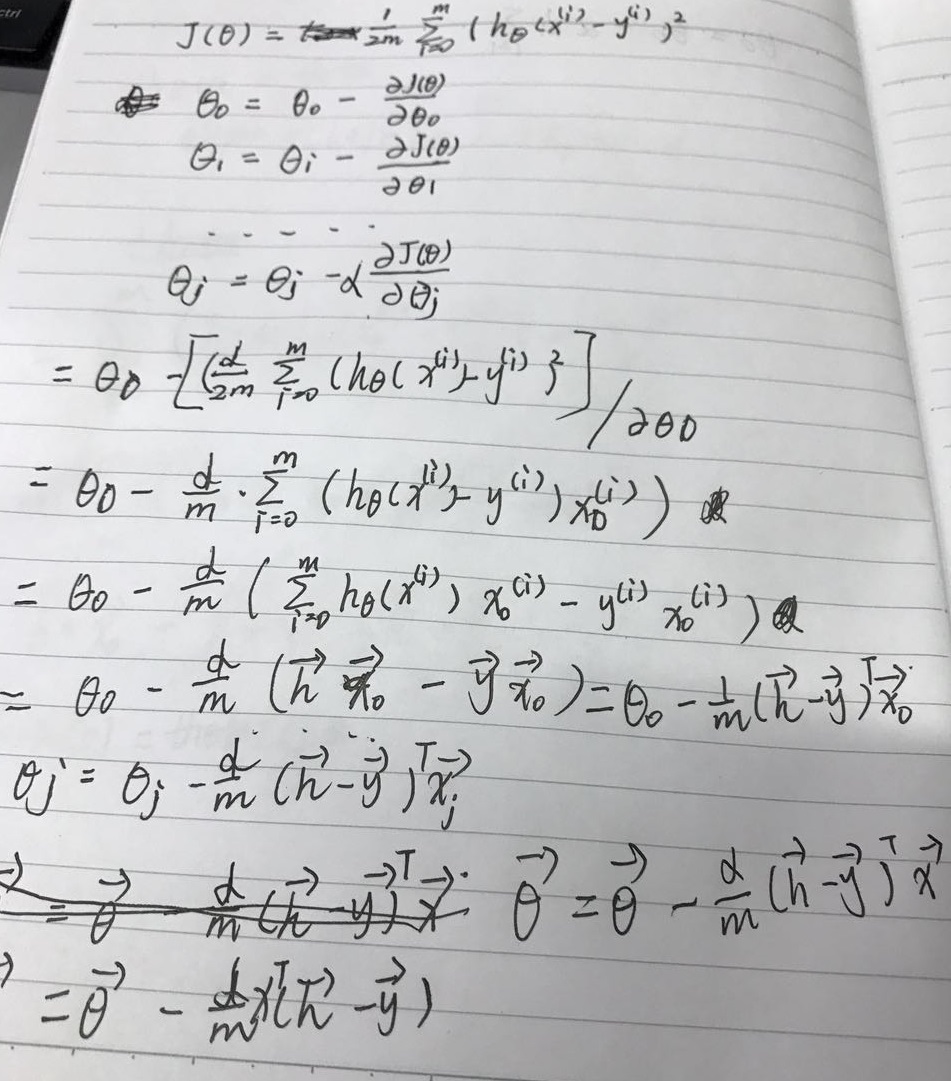 J(θ) = 1/2m Σ_{i=0}^{m} (hθ(x^(i) - y^(i))²
θ₀ = θ₀ - ∂J(θ)/∂θ₀
θ₁ = θi - ∂J(θ)/∂θ1
. - - - . .
θj = θj - α ∂J(θ)/∂θj
= θ₀ - [(α/2m Σ_{i=0}^{m} (hθ(x^(i)) - y^(i))²] / ∂θ0
= θ₀ - α/m · Σ_{i=0}^{m} (hθ(x^(i)) - y^(i)) x₀^(i))
= θ₀ - α/m (Σ_{i=0}^{m} hθ(x^(i)) x₀^(i) - y^(i) x₀^(i))
= θ₀ - α/m (h⃗ x⃗₀ - y⃗ x⃗₀) = θ₀ - 1/m (h⃗ - y⃗)ᵀ x⃗₀
θj = θj - α/m (h⃗ - y⃗)ᵀ x⃗j
= θ⃗ α/m (h⃗ - y⃗)ᵀ x⃗ θ⃗ = θ⃗ - α/m (h⃗ - y⃗)ᵀ x⃗
= θ⃗ - α/m xᵀ(h⃗ - y⃗)